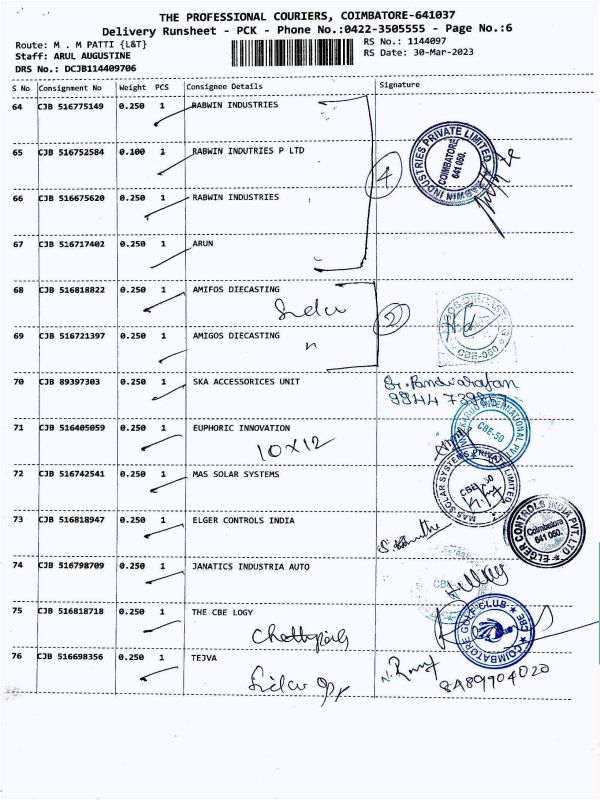 THE PROFESSIONAL COURIERS, COIMBATORE-641037
Delivery Runsheet - PCK - Phone No.:0422-3505555 - Page No.:6
Route: M . M PATTI {L&T}
RS No.: 1144097
Staff: ARUL AUGUSTINE
RS Date: 30-Mar-2023
DRS No.: DCJB114409706
S No Consignment No Weight PCS Consignee Details Signature
64 CJB 516775149 0.250 1 RABWIN INDUSTRIES
65 CJB 516752584 0.100 1 RABWIN INDUTRIES P LTD
INDUSTRIES PRIVATE LIMITED
COIMBATORE
641 050.
4
66 CJB 516675620 0.250 1 RABWIN INDUSTRIES
67 CJB 516717402 0.250 1 ARUN
68 CJB 516818822 0.250 1 AMIFOS DIECASTING
2
69 CJB 516721397 0.250 1 AMIGOS DIECASTING
CBE-050
70 CJB 89397303 0.250 1 SKA ACCESSORICES UNIT
71 CJB 516405059 0.250 1 EUPHORIC INNOVATION
10X12
CBE-50
72 CJB 516742541 0.250 1 MAS SOLAR SYSTEMS
MAS SOLAR SYSTEMS PRIVATE LIMITED
73 CJB 516818947 0.250 1 ELGER CONTROLS INDIA
ELGER CONTROLS INDIA PVT. LTD
Coimbatore
641 050.
74 CJB 516798709 0.250 1 JANATICS INDUSTRIA AUTO
75 CJB 516818718 0.250 1 THE CBE LOGY
COIMBATORE GOLF CLUB CBE
76 CJB 516698356 0.250 1 TEJVA
8489904020